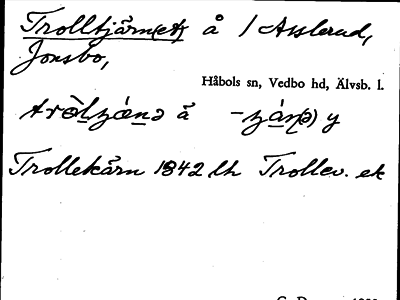 Trolltjärn(et) å / Asslerud,
Jonsbo,
Håbols sn, Vedbo hd, Älvsb. l.
å y
Trollekärn 1842 lh Trollev. ek